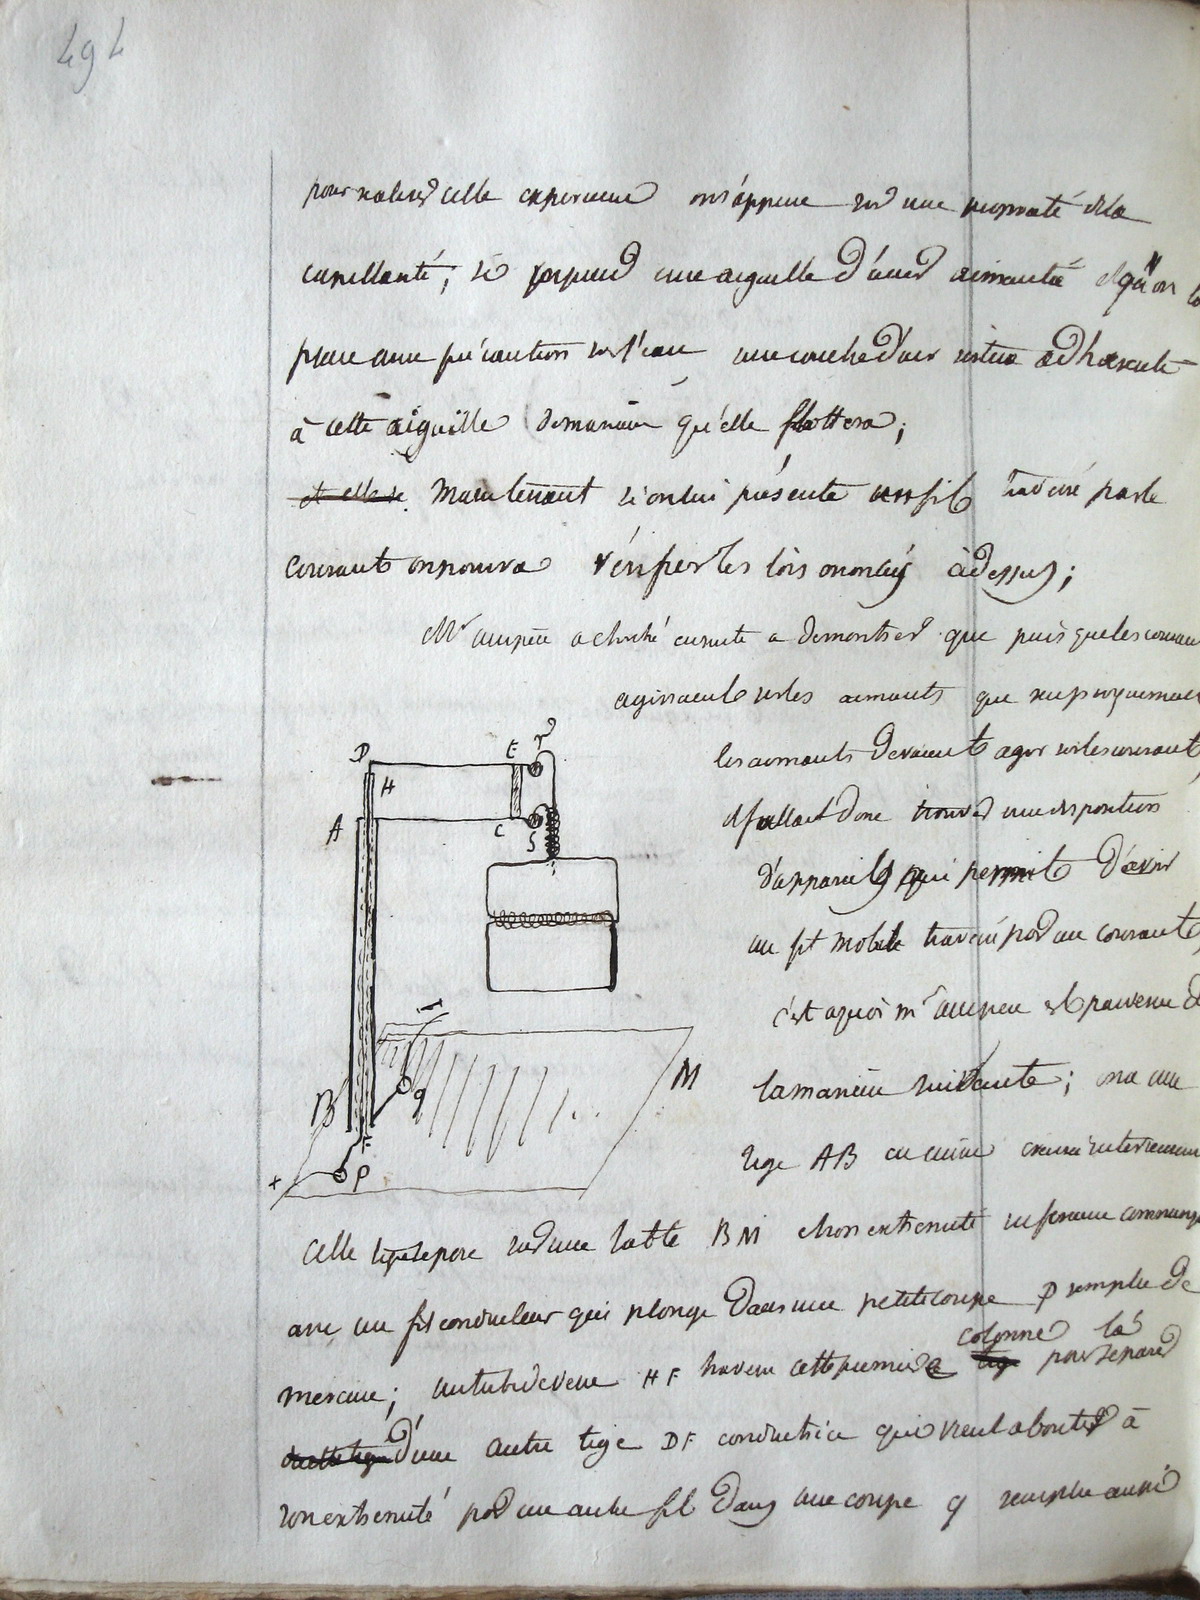 494
pour realiser cette experience on s'appuie sur une propriété de la
capillarité; si on prend une aiguille d'acier aimantée et qu'on la
place avec précaution sur l'eau une couche d'air restera adhérente
à cette aiguille de maniere qu'elle flottera;
et elle se Maintenant si on lui présente un fil traversé par le
courant on pourra vérifier les lois énoncés ci dessus;
Mr ampère a cherché ensuite a demontrer que puisque les courans
agissaient sur les aimants que reciproquement
les aimants devaient agir sur les courants
il fallait donc trouver une disposition
d'appareils qui permit d'avoir
un fil mobile traversé par un courant,
c'est a quoi mr ampere est parvenu de
la maniere suivante; on a une
tige AB en cuivre creuse interieurement
D E r
H
A C S
B F q M
+ P
Cette tige repose sur une table BM et son extremité inferieure communique
avec un fil conducteur qui plonge dans une petite coupe P remplie de
colonne la
mercure; un tube de verre HF traverse cette premiere tige pour separer
d'une autre tige DF conductrice qui vient aboutir à
son extremité par un autre fil dans une coupe q remplie aussi